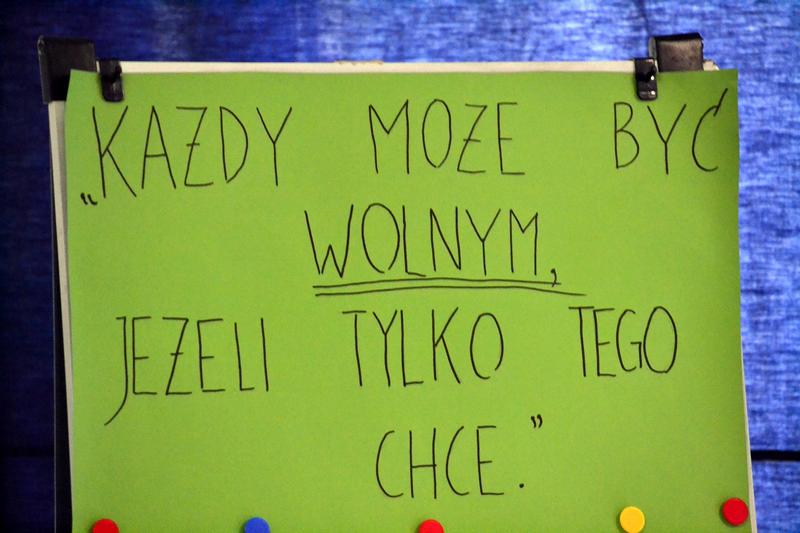 „KAŻDY MOŻE BYĆ
WOLNYM,
JEŻELI TYLKO TEGO
CHCE."